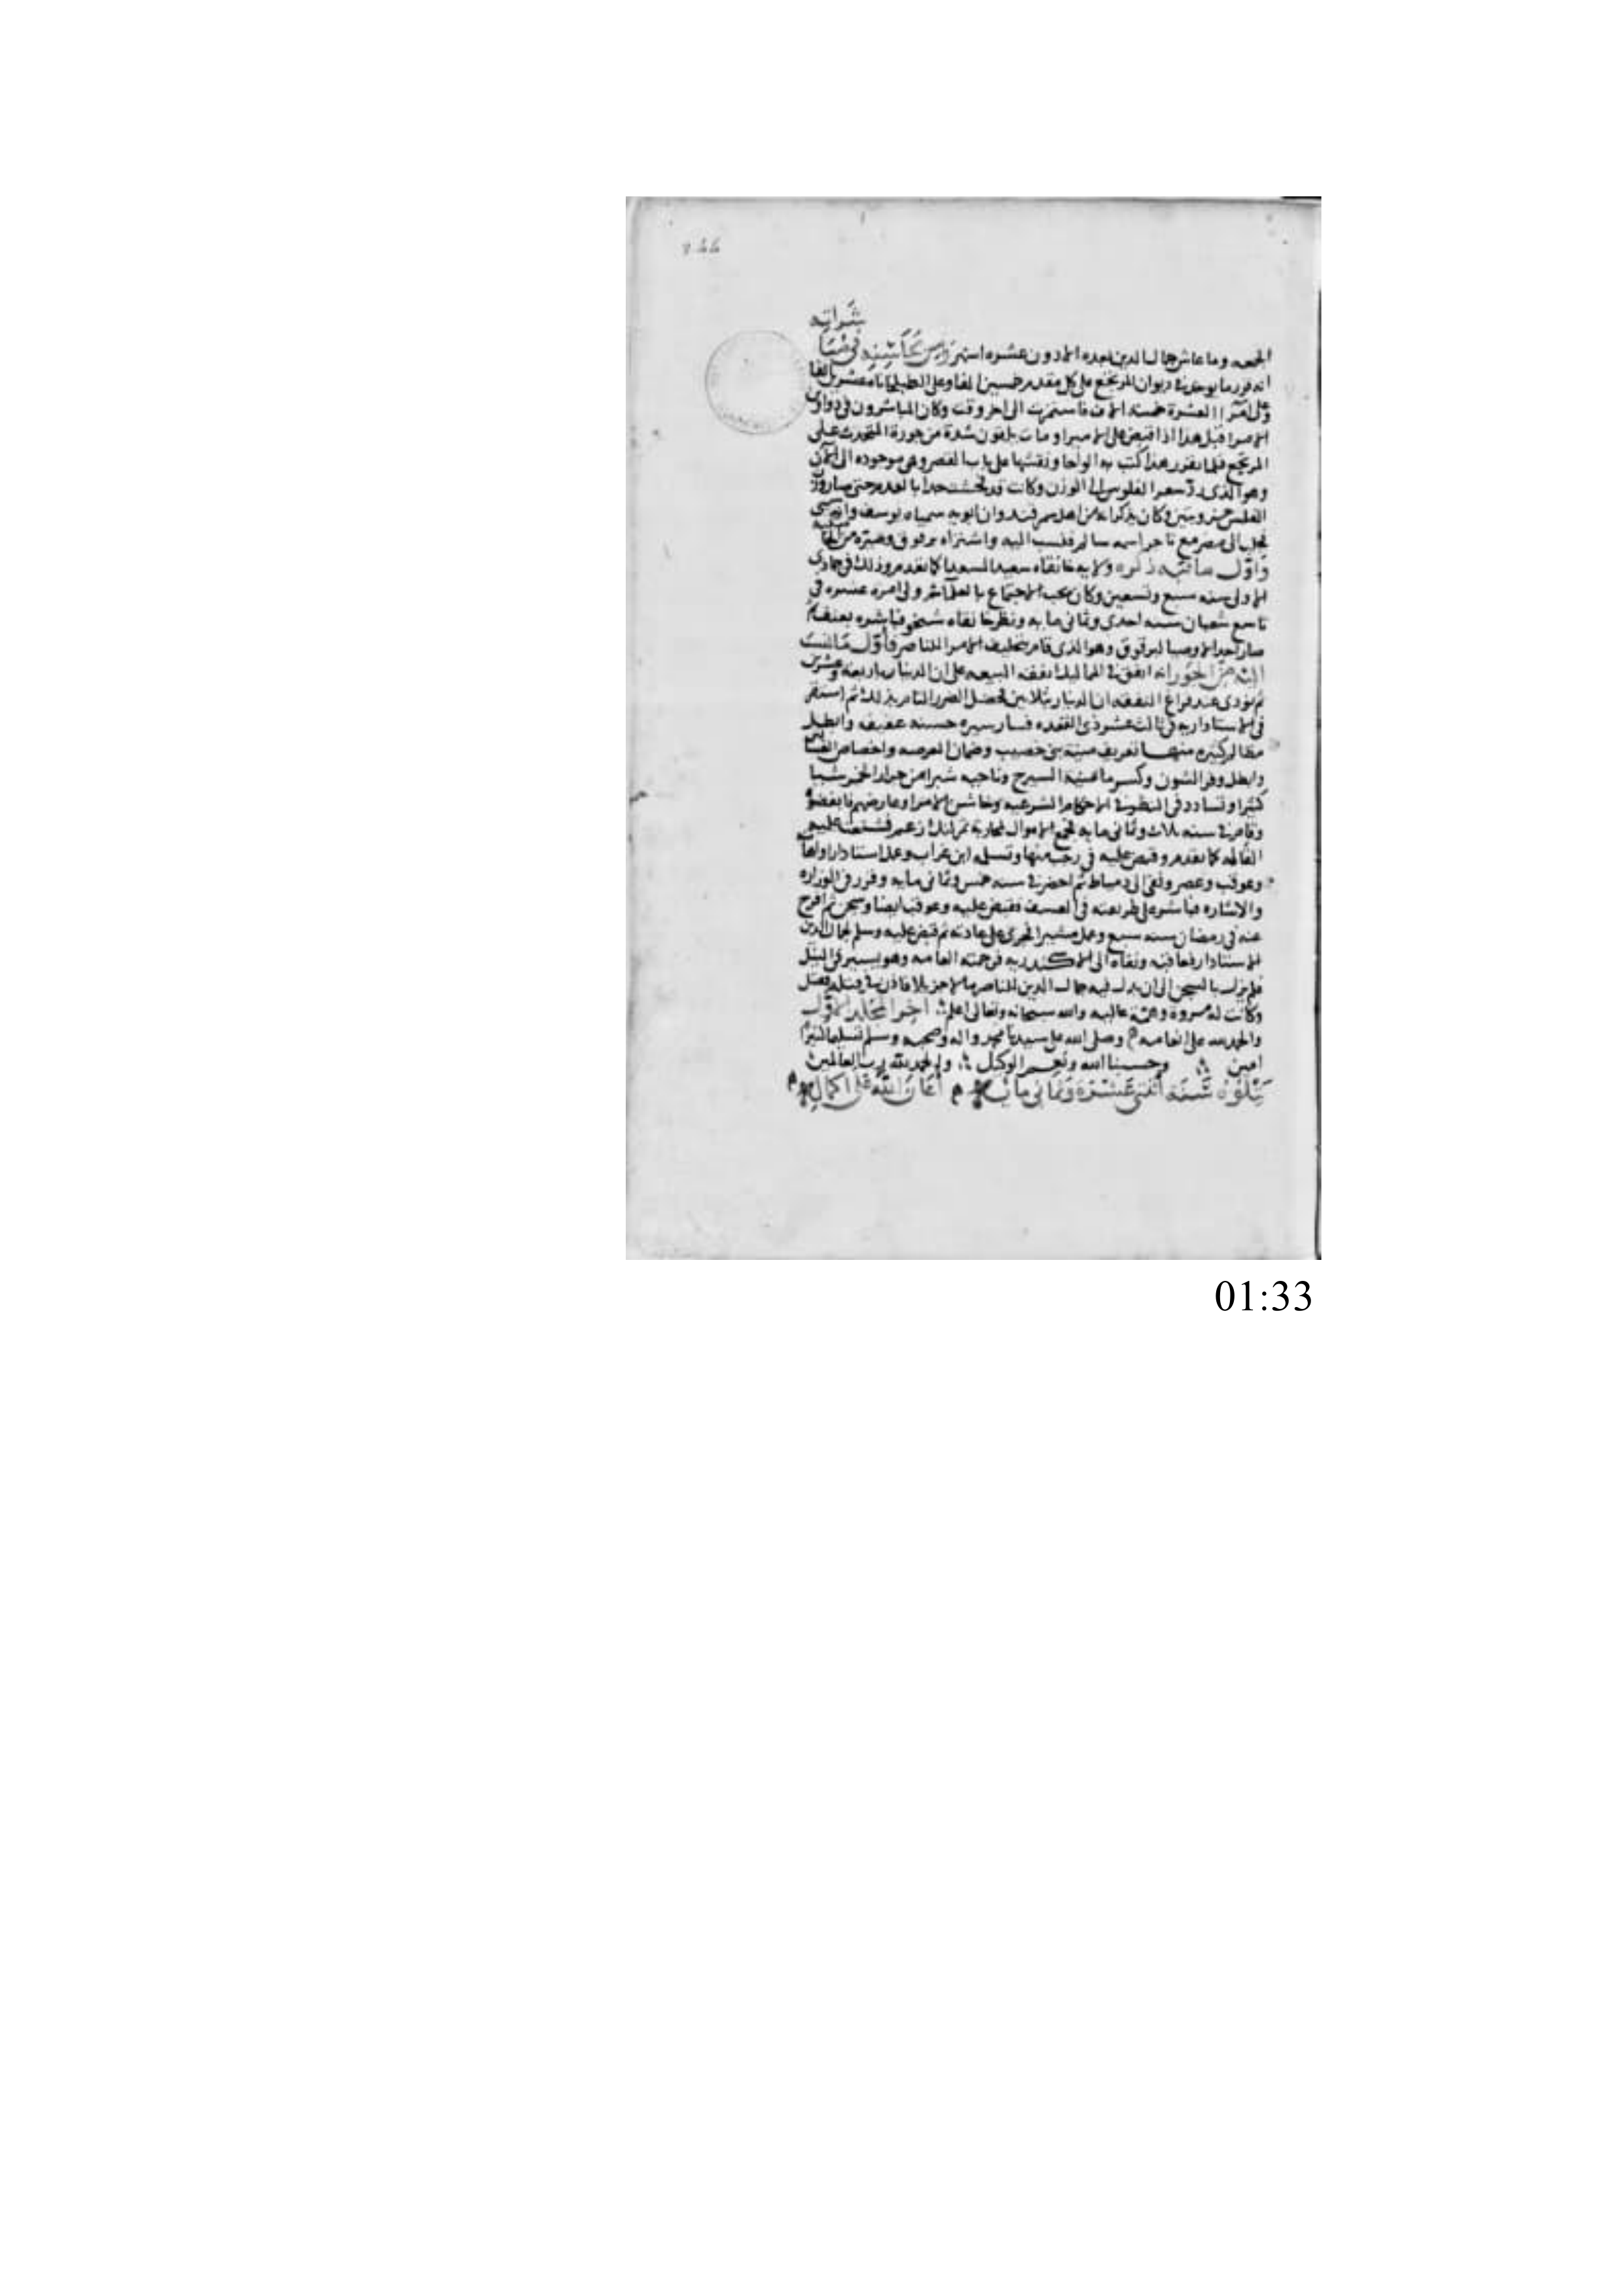 الجمعه وما عاش جمال الدين بعده الا دون عشره اشهر ومن محاسنه في مباشراته
انه قرر ما يوخذ في ديوان المرتجع على كل مقدم خمسين الفا وعلى الطبلخاناه عشرين الفا
وعلى امرا العشرة خمسة الاف فاستمرت الى اخر وقت وكان المباشرون في دواوين
الامرا قبل هذا اذا قبض على الامير او مات يلقون شدة من جورة المتحدث على
المرتجع فلما تقرر هذا كتب به الواحا ونقشها على باب القصر وهي موجوده الى الان
وهو الذي رد سعر الفلوس الى الوزن وكانت قد فحشت جدا بالعدد حتى صار وزن
الفلس خروبتين وكان يذكر انه من اهل سمرقند وان ابويه سمياه يوسف وانه سبي
فجلب الى مصر مع تاجر اسمه سالم فنسب اليه واشتراه برقوق وصيره من الخاصكيه
واول ما نبه ذكره ولايه خانقاه سعيد السعدا كما تقدم وذلك في جمادى
الاولى سنه سبع وتسعين وكان يحب الاجتماع بالعلما ثم ولي امرة عشره في
تاسع شعبان سنه احدى وثماني مايه ونظر خانقاه شيخو فباشره بعنف ثم
صار احد الاوصيا لبرقوق وهو الذي قام بتحليف الامرا للناصر فاول ما نسب
اليه من الجور انه انفق في المماليك نفقه البيعه على ان الدينار باربعه وعشرين
ثم نودي عند فراغ النفقه ان الدينار بثلاثين فحصل الضرر التام بذلك ثم استقر
في الاستاداريه في ثالث عشر ذي القعده فسار سيره حسنه عفيف وابطل
مظالم كثيره منها تعريف منية بني خصيب وضمان العرصه واخصاص
وابطل وفر الشون وكسر ما بمنية السيرج وناحيه شبرا من جرار الخمر شيا
كثيرا وتشدد في النظر في الاحكام الشرعيه وخاشن الامرا وعارضهم فابغضوه
وقام في سنه ثلاث وثماني مايه فجمع الاموال لمحاربة تمرلنك زعم فشنعت عليه
القاله كما تقدم وقبض عليه في رجب منها وتسلمه ابن غراب وعمل استادارا
وعوقب وعصر ونفي الى دمياط ثم احضر في سنه خمس وثماني مايه وقرر في الوزاره
والاشاره فباشر على طريقته في العسف فقبض عليه وعوقب ايضا وسجن ثم افرج
عنه في رمضان سنه سبع وعمل مشيرا فجرى على عادته ثم قبض عليه وسلم لجمال الدين
الاستادار فعاقبه ونفاه الى الاسكندريه فرجمته العامه وهو يسير في النيل
فلم يزل بالسجن الى ان بذل فيه جمال الدين للناصر مالا جزيلا فاذن في قتله فقتل
وكانت له مروة وهمة عاليه والله سبحانه وتعالى اعلم اخر المجلد الاول
والحمد لله على انعامه وصلى الله على سيدنا محمد واله وصحبه وسلم تسليما كثيرا
امين وحسبنا الله ونعم الوكيل والحمد لله رب العالمين
يتلوه سنة اثنتي عشرة وثماني مايه اعان الله على اكماله
01:33